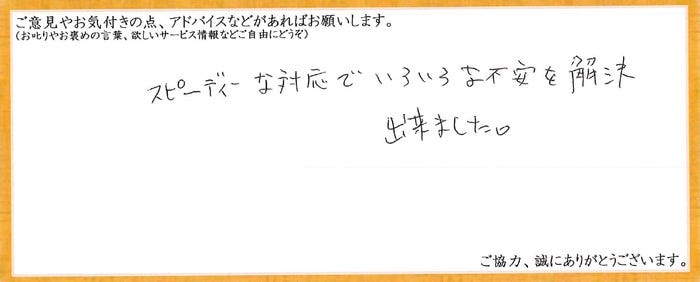 ご意見やお気付きの点、アドバイスなどがあればお願いします。
(お叱りやお褒めの言葉、欲しいサービス情報などご自由にどうぞ)
スピーディーな対応でいろいろな不安を解決
出来ました。
ご協力、誠にありがとうございます。